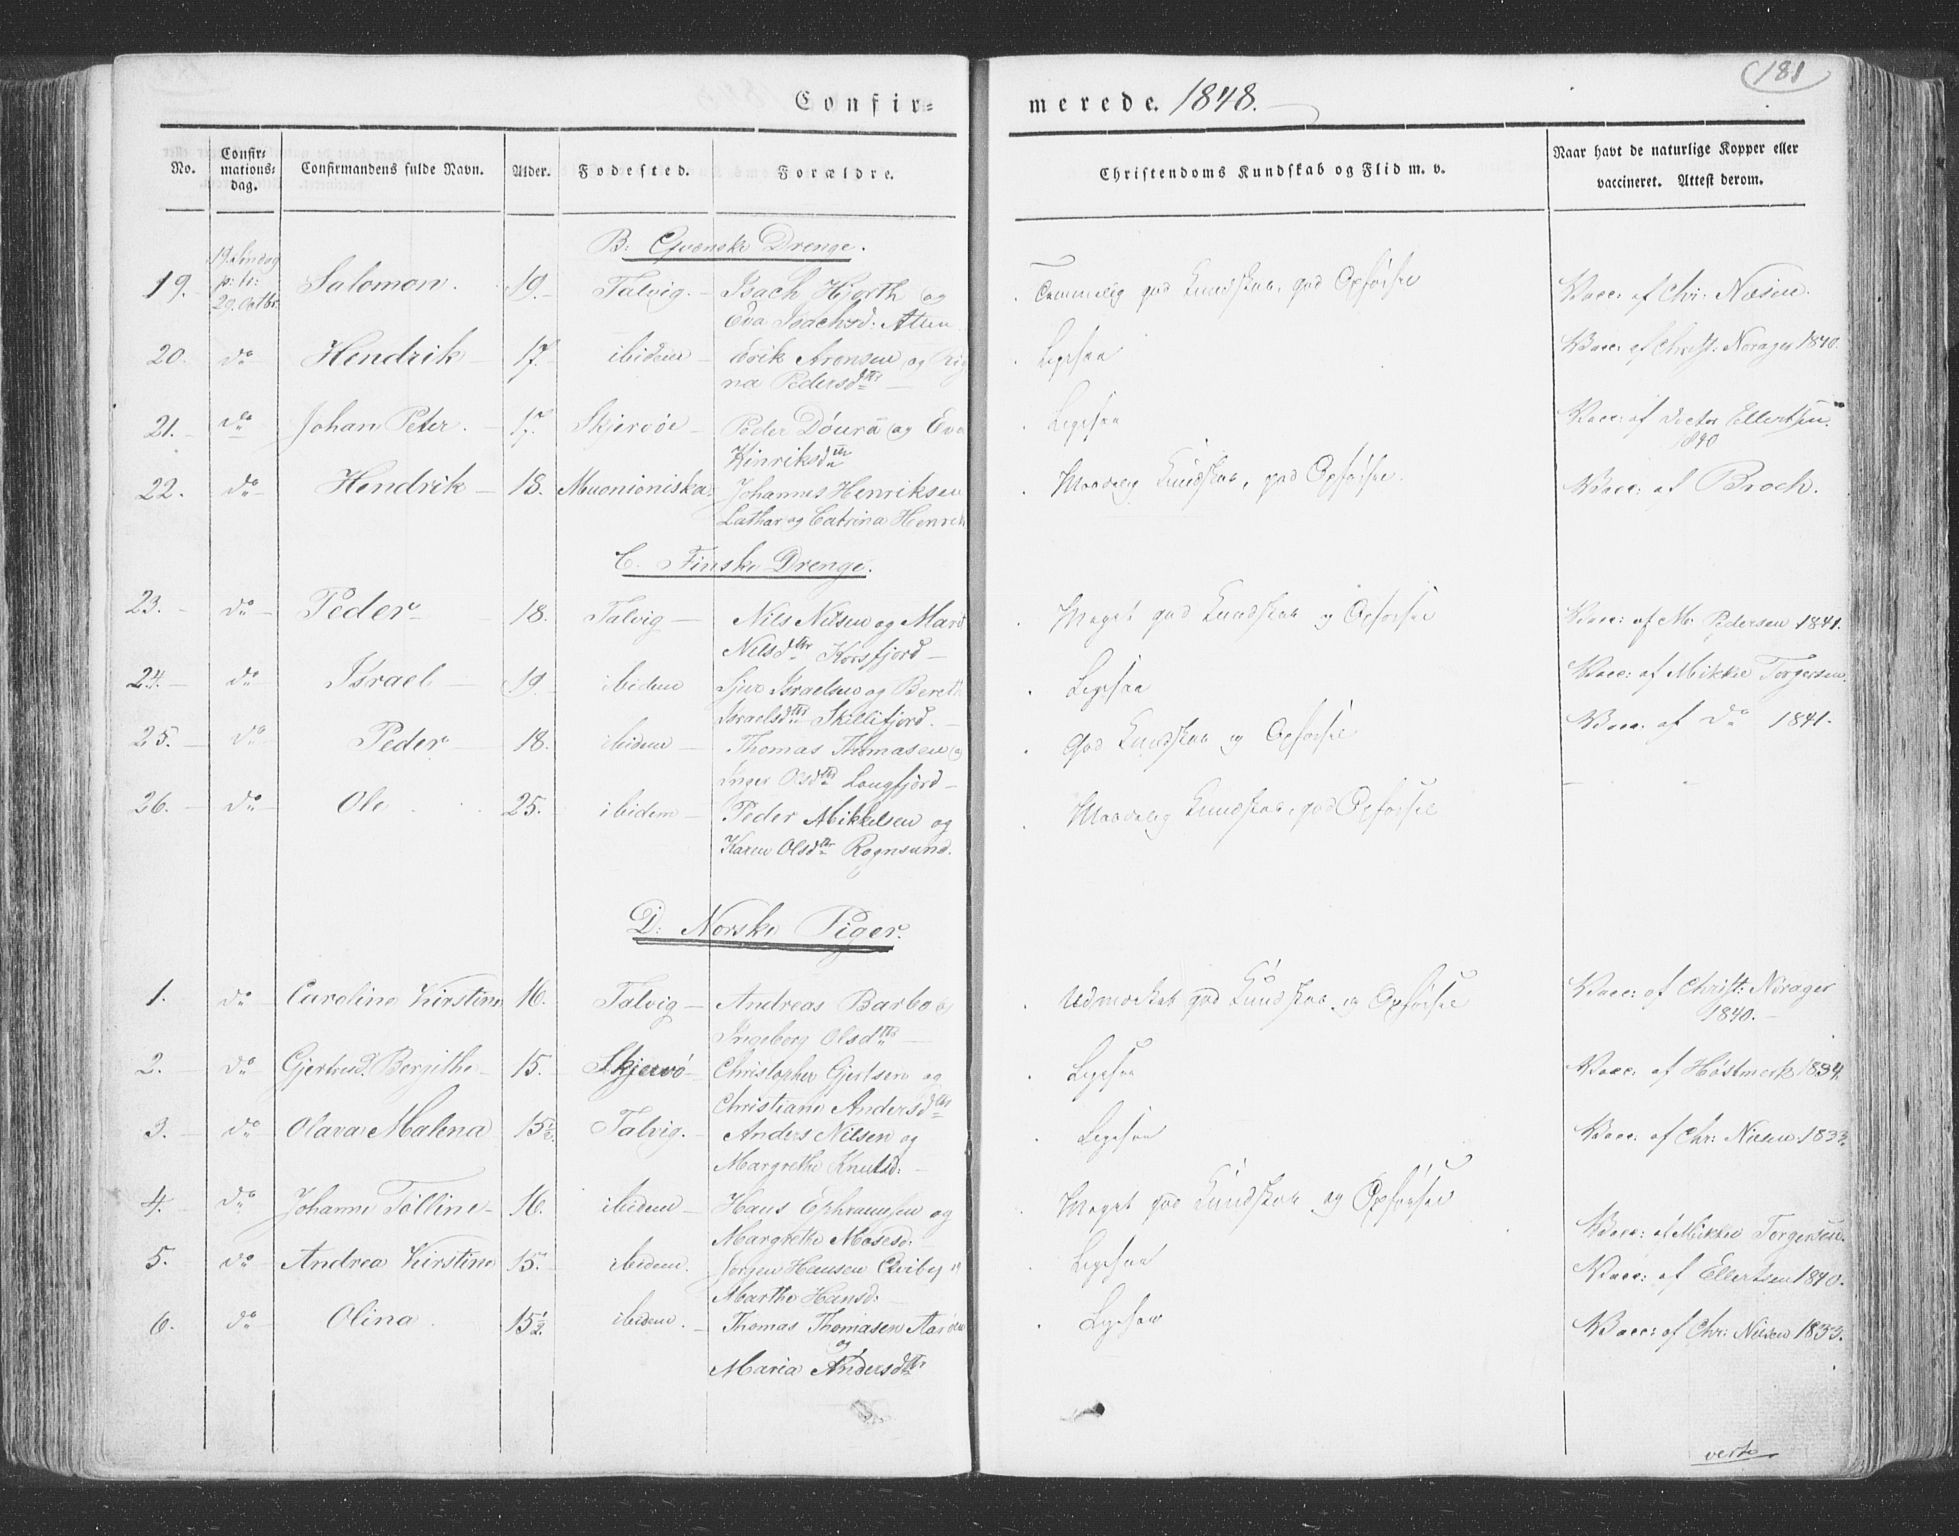 181
Confir= merede. 1848.
No. Confir=mations=dag. Confirmandens fulde Navn. Alder. Fødested. Forældre. Christendoms Kundskab og Flid m. v. Naar havt de naturlige Kopper eller vaccineret. Attest derom.
B: Qvænske Drenge.
19. Søndag p: tr: 29. Octbr. Salomon. 19. Talvig. Isach Hjorth og Temmelig god Kundskab, god Opførsel Vacc: af Chr: Nielsen.
Eva Isachsd: Alten
20. do Hendrik 17. ibidem Erik Aronsen og Ligesaa Vacc: af Christ: Norager 1840.
na Pedersdtr
21. do Johan Peter. 17. Skjervöe Peder og Eva Ligesaa Vacc: af Doctor Ellertsen.
Hinriksd 1840
22. do Hendrik 18. Muonioniska Johannes Henriksen Maadelig Kundskab, god Opførsel. Vacc: af Broch.
Lathar og Catrina Henrik
C. Finske Drenge.
23. do Peder 18. Talvig Nils Nilsen og Mari Meget god Kundskab og Opførsel Vacc: af M. Pedersen 1841.
Nilsdtr Korsfjord
24. do Israel 19 ibidem Sjur Israelsen og Bereth Ligesaa Vacc: af Mikkel Torgersen.
Israelsdtr Skillifjord.
25. do Peder 18. ibidem Thomas Thomasen og God Kundskab og Opførsel Vacc: af Do 1841.
Inger Olsdtr Langfjord
26. do Ole 25. ibidem Peder Mikkelsen og Maadelig Kundskab, god Opførsel
Karen Olsdtr Rognsund.
D: Norske Piger.
1. do Caroline Kirstine 16. Talvig Andreas Barbo og Udmærket god Kundskab og Opførsel Vacc: af Christ: Norager
Ingeborg Olsdtr 1840.
2. do Gjertrud Bergithe 15. Skjervö Christopher Gjertsen og Ligesaa Vacc: af Höstmark 1834.
Christiane Andersdtr
3. do Olava Malena 15½ Talvig. Anders Nilsen og Ligesaa Vacc: af Chr: Nielsen 1833.
Margrethe Knutsd:
4. do Johanne Tolline 16. ibidem Hans Ephraimsen og Meget god Kundskab og Opførsel Vacc: af Mikkel Torgersen.
Margrethe Mosesd:
5. do Andrea Kirstine 15. ibidem. Jørgen Hansen og Ligesaa Vacc: af Ellertsen 1840.
Marthe Hansd:
6. do Olina 15½ ibidem. Thomas Thomasen Ligesaa Vacc: af Chr: Nielsen 1833.
og
Maria Andersdtr
verte